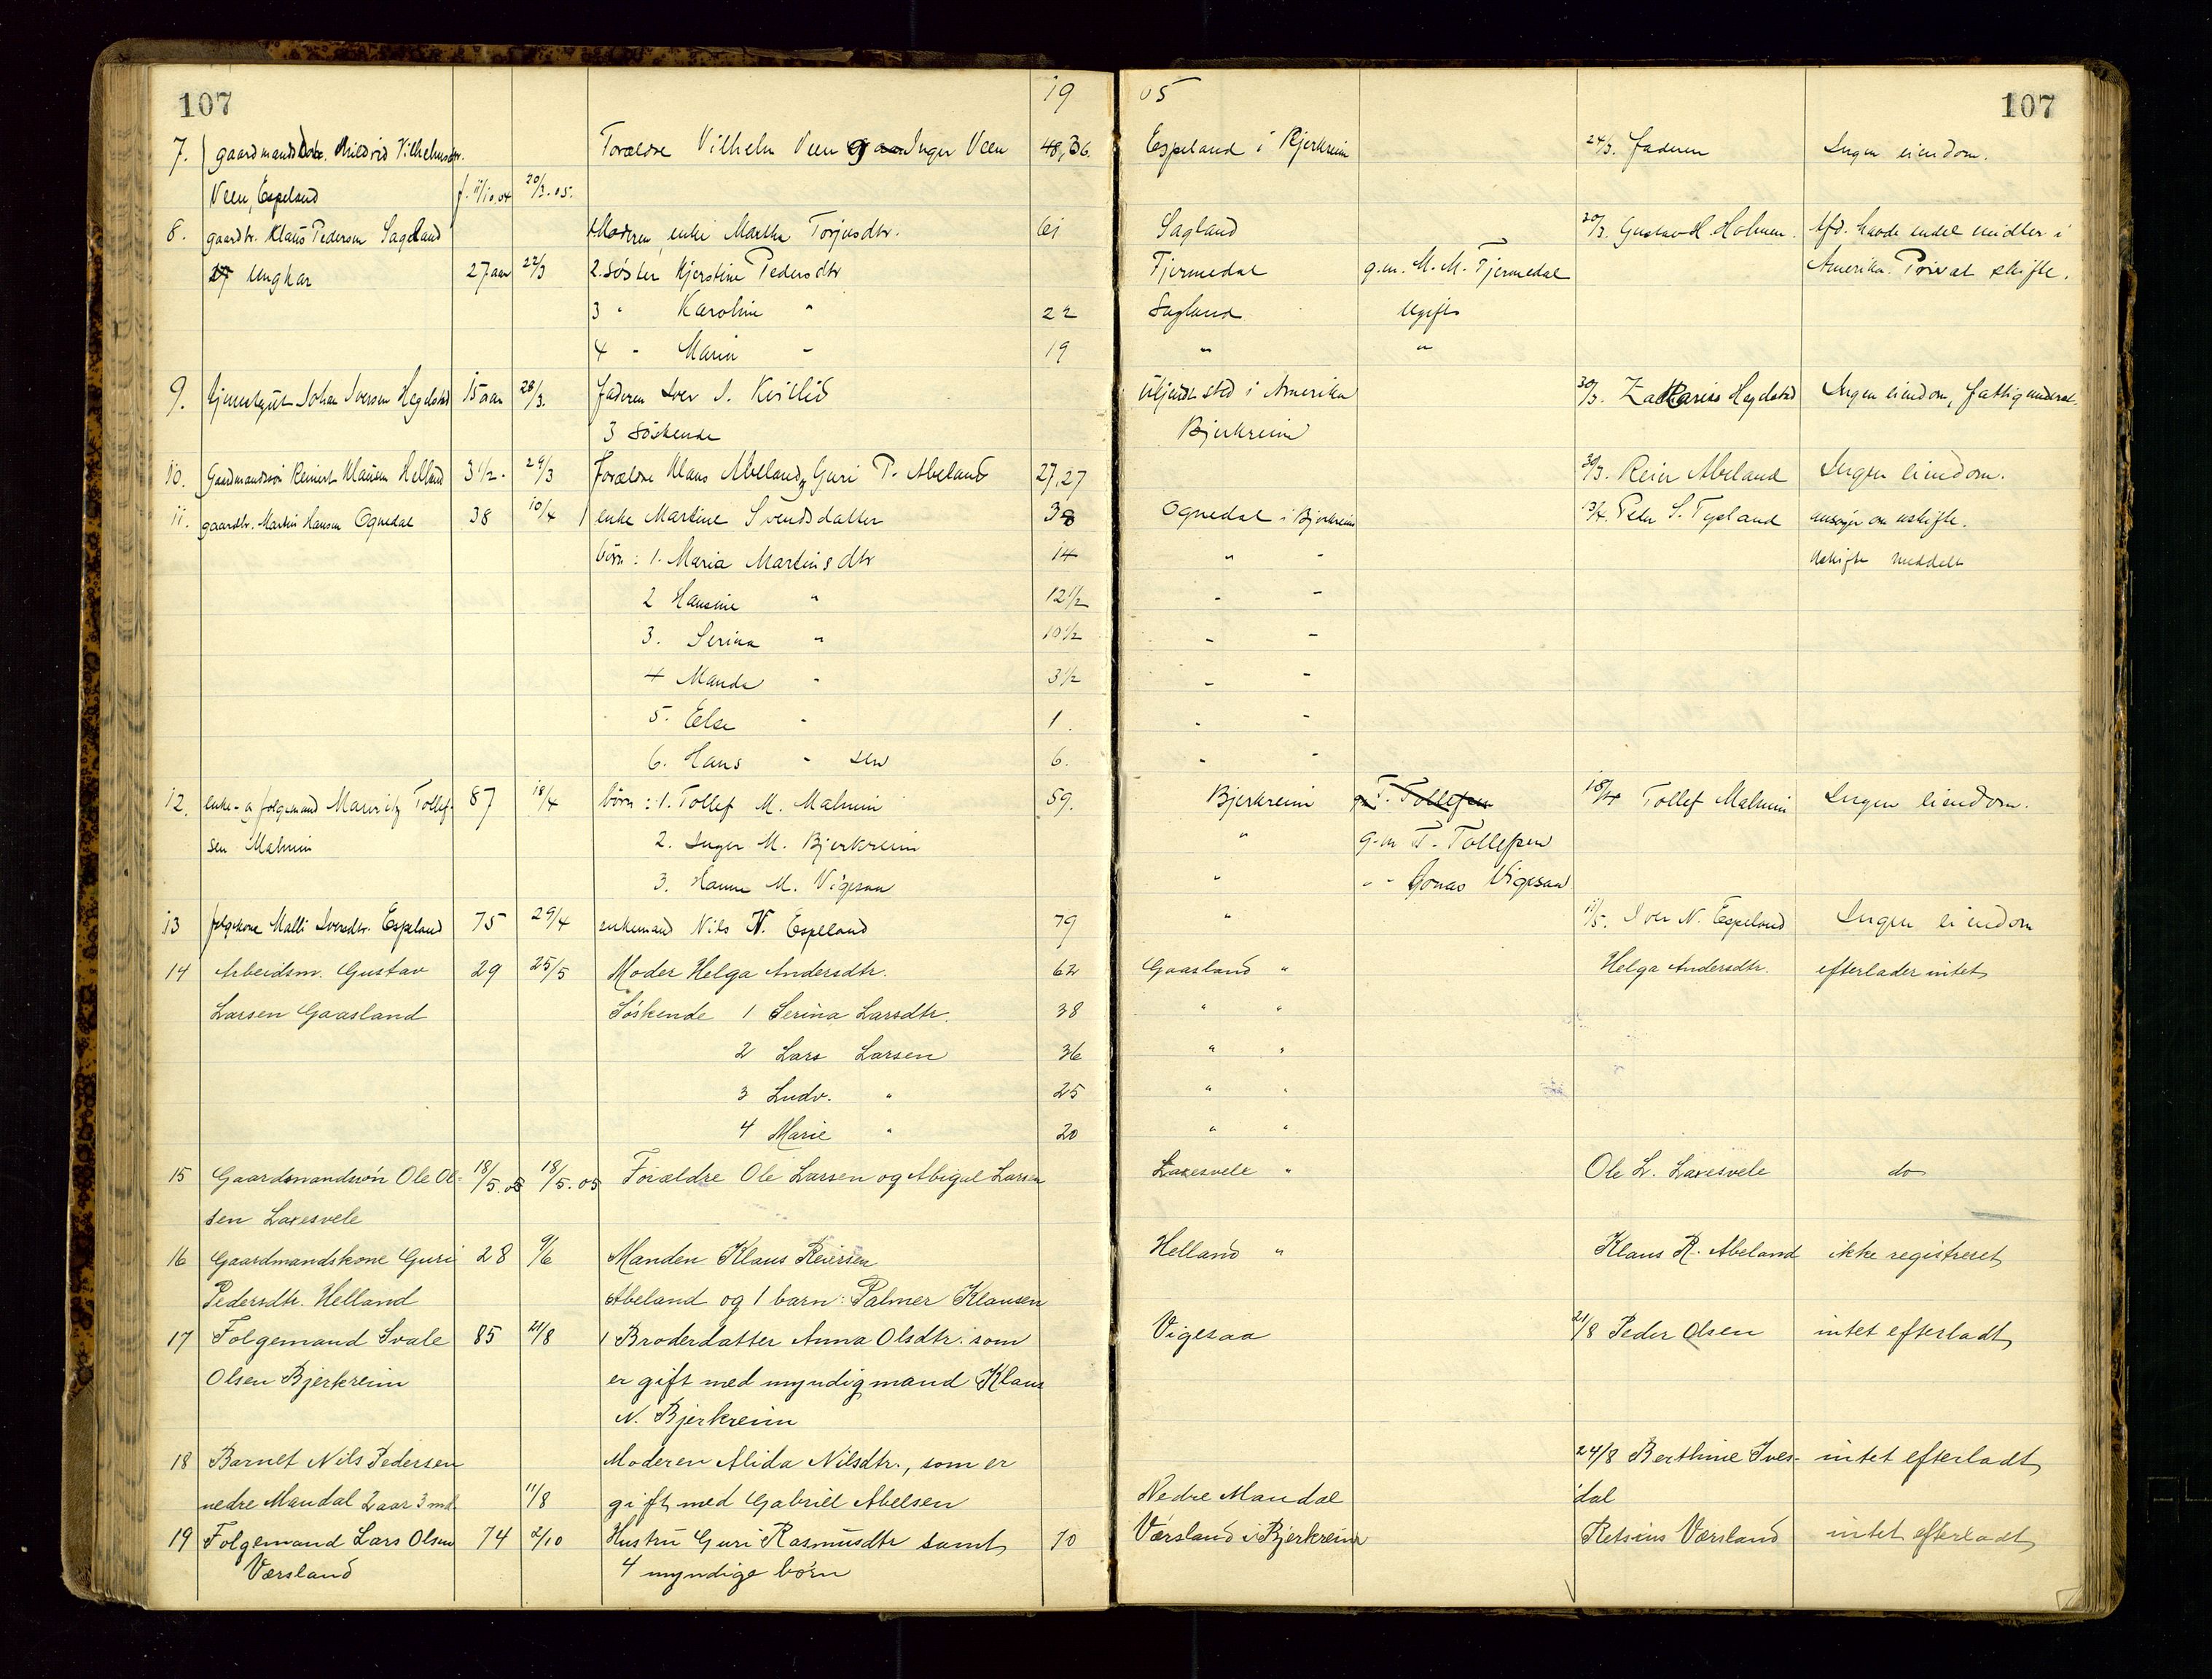 107 19 05 107
7. gaardmandsdatr. Mildrid Vilhelmsdtr. Forældre Vilhelm Veen og Inger Veen 48, 36. Espeland i Bjerkreim 24/3. Faderen Ingen eiendom.
Veen, Espeland f. 11/10.04 20/3.05.
8. gaardbr. Klaus Pedersen Sagland Moderen enke Martha Torjusdtr. 61 Sagland 30/3. Gustav H. Holmen. Afd. havde endel midler i
ungkar 27 aar 22/3 2. Søster Kjerstine Pedersdtr Tjermedal g.m. M. M. Tjermedal Amerika. Privat skifte.
3 " Karoline " 22 Sagland Ugift
4 - Marin - 19 " "
9. tjenestgut Johan Iversen Hegelstad 15 aar 28/3. faderen Iver I. Kvitlid ukjendt sted i Amerika 30/3. Zakarias Hegelstad Ingen eiendom, fattigunderst.
3 Søskende Bjerkreim
10. Gaardmandssøn Reinert Klausen Helland 3 1/2. 29/3 forældre Klaus Abeland, Guri P. Abeland 27, 27 30/3. Reier Abeland Ingen eiendom.
11. gaardbr. Martin Hansen Ognedal 38 10/4 enke Martine Svendsdatter 38 Ognedal i Bjerkreim 13/4. Peder S. Tysland ansøger om uskifte.
børn : 1. Maria Martinsdtr 14 " - Uskifte meddelt
2 Hansine " 12 1/2 - -
3. Serina " 10 1/2 - -
4 Manda - 3 1/2 - -
5. Else - 1. - -
6. Hans - sen 6. - -
12. enke- og folgemand Mauritz Tollef- 87 18/4 børn : 1. Tollef M. Malmin 59. Bjerkreim g.m T. Tollefsen 18/4 Tollef Malmin Ingen eiendom.
sen Malmin 2. Inger M. Bjerkreim " g.m T. Tollefsen
3. Hanne M. Vigesaa " - - Jonas Vigesaa
13 folgekone Malli Iversdtr. Espeland 75 29/4 enkemand Nils N. Espeland 79 " 11/5. Iver N. Espeland Ingen eiendom
14 Arbeidsm. Gustav 29 25/5 Moder Helga Andersdtr. 62 Gaasland " Helga Andersdtr. efterlader intet
Larsen Gaasland Søskende 1 Serina Larsdtr. 38 " "
2 Lars Larsen 36 " "
3 Ludv. " 25 " "
4 Marie " 20 " "
15 Gaardsmandssøn Ole Ol- 18/5.05 18/5.05 Forældre Ole Larsen og Abigal Larsen Laxesvele " Ole L. Laxesvele do
sen Laxesvele
16 Gaardmandskone Guri 28 9/6 Manden Klaus Reiersen Helland " Klaus R. Abeland ikke registreret
Pedersdtr. Helland Abeland og 1 barn: Palmer Klausen
17 Folgemand Svale 85 21/8 1 Broderdatter Anna Olsdtr. som Vigesaa 21/8 Peder Olsen intet efterladt
Olsen Bjerkreim er gift med myndig mand Klaus
N. Bjerkreim
18 Barnet Nils Pedersen Moderen Alida Nilsdtr., som er 24/8 Berthine Ives- intet efterladt
nedre Maudal 2 aar 3 md. 11/8 gift med Gabriel Abelsen Nedre Maudal dal
19 Folgemand Lars Olsen 74 2/10 Hustru Guri Rasmusdtr samt 70 Værsland i Bjerkreim Retsius Værsland intet efterladt
Værsland 4 myndige børn